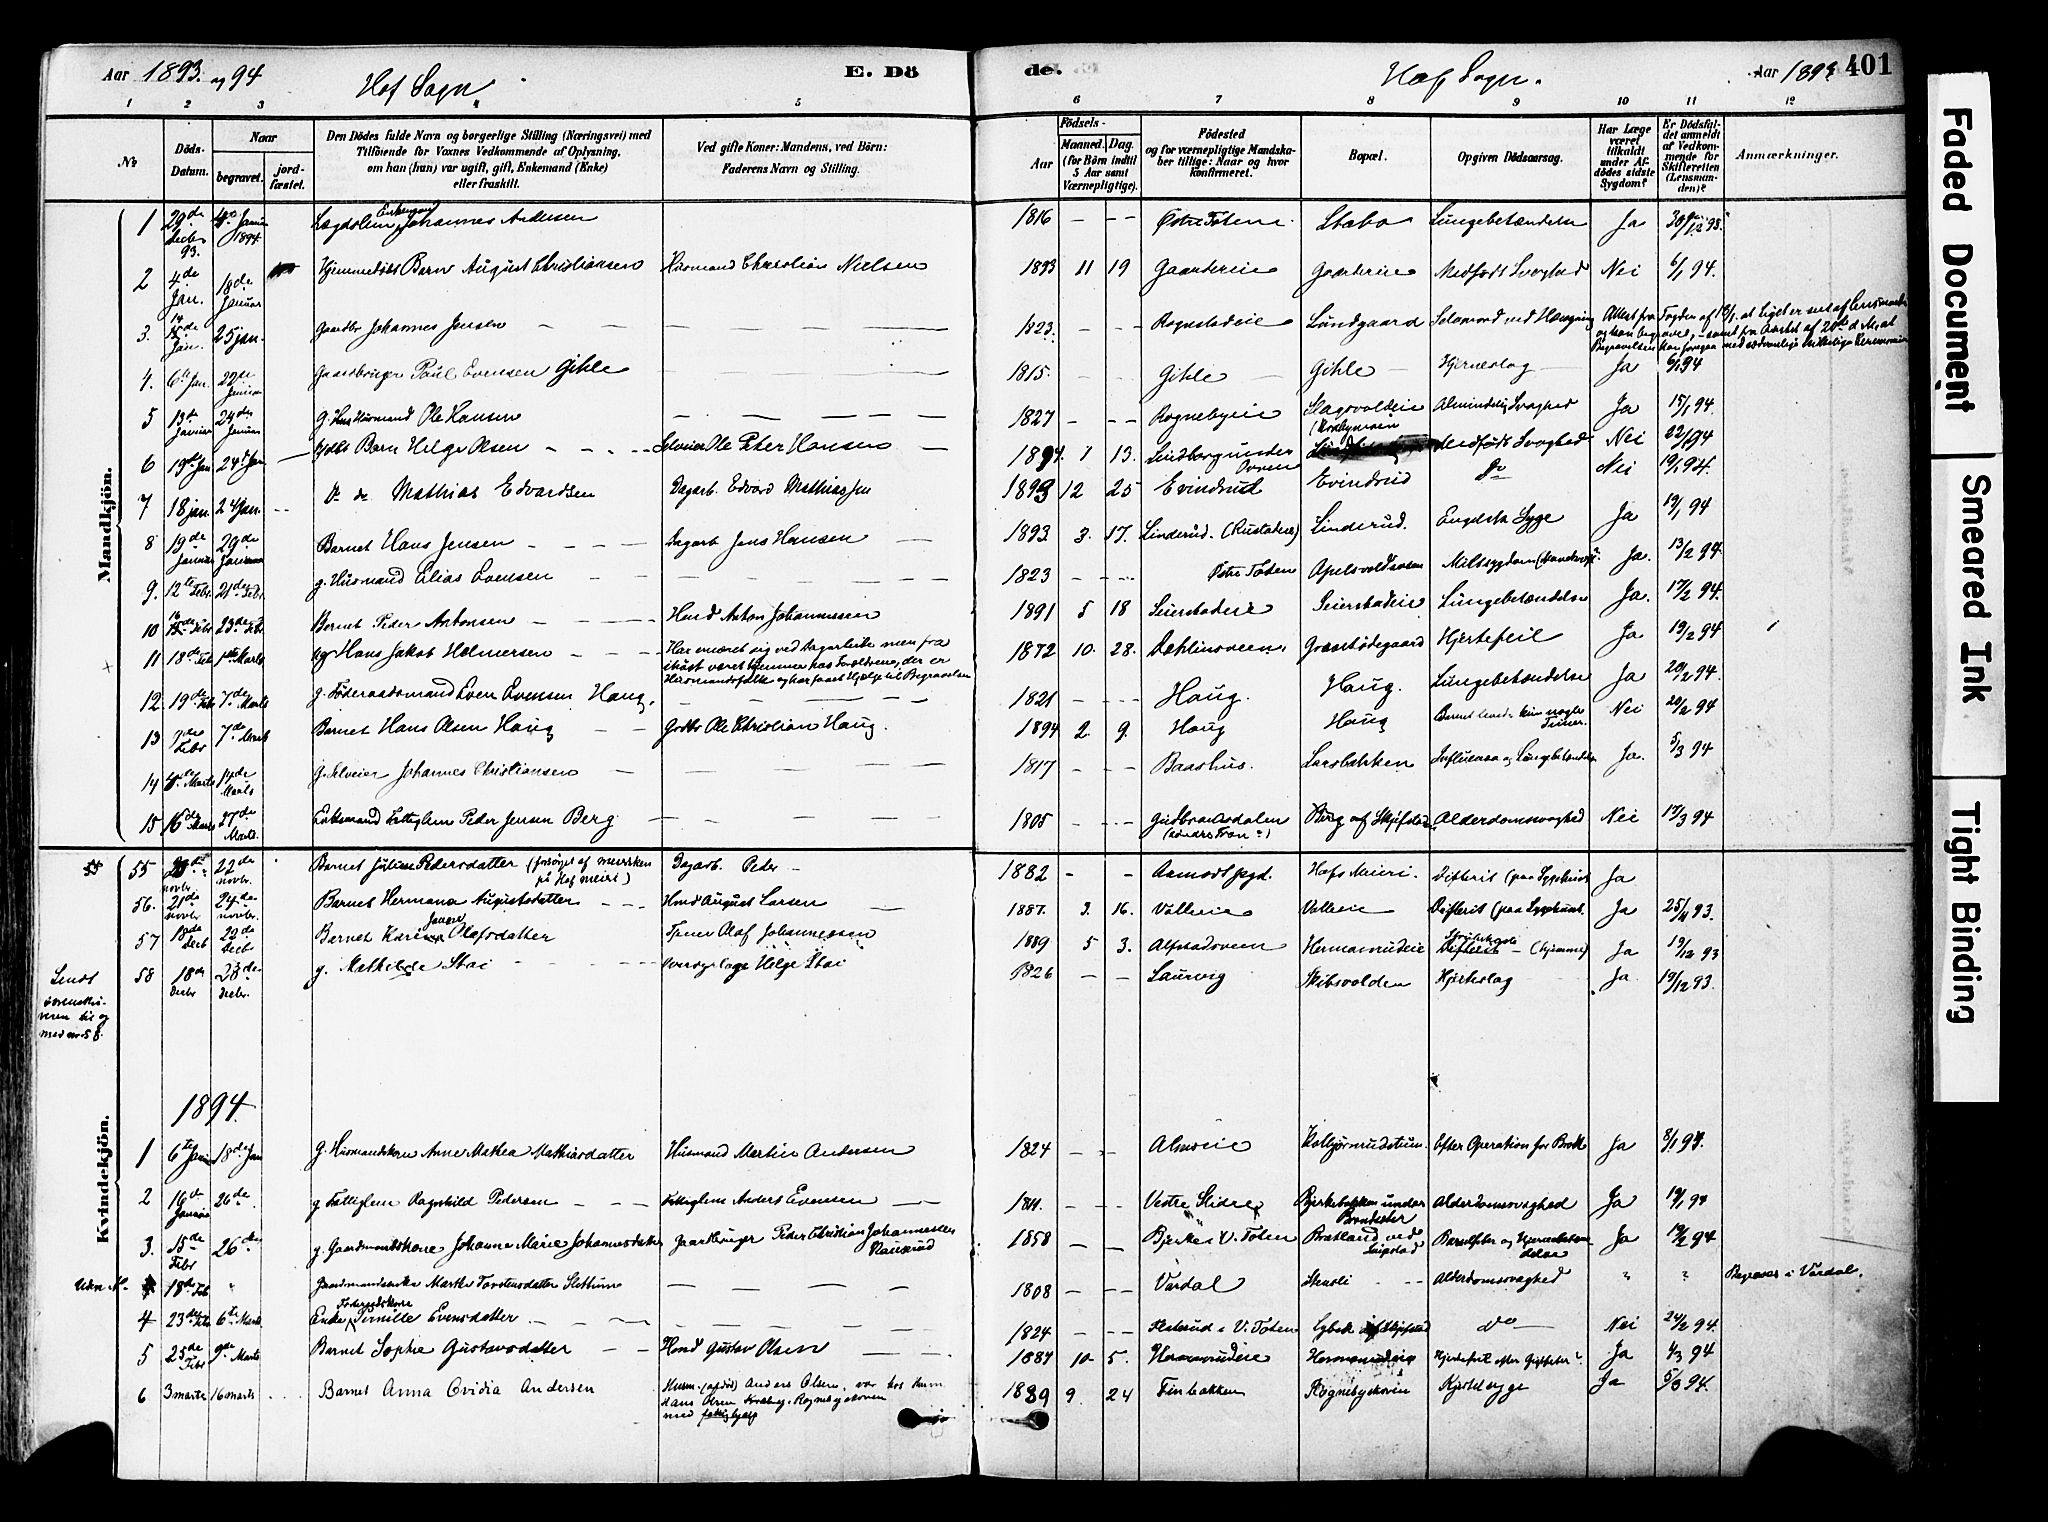 Aar 1893 og 94 Hof Sogn E. Dö
de. Hof Sogn. Aar 1893 401
1 2 3 4 5 6 7 8 9 10 11 12
No
Döds-Datum.
Naar
begravet.
jord-fæstet.
Den Dödes fulde Navn og borgerlige Stilling (Næringsvei) med
Tilföiende for Voxnes Vedkommende af Oplysning,
om han (hun) var ugift, gift, Enkemand (Enke)
eller fraskilt.
Ved gifte Koner: Mandens, ved Börn:
Faderens Navn og Stilling.
Födsels-
Aar
Maaned. Dag.
(for Börn indtil
5 Aar samt
Værnepligtige).
Födested
og for værnepligtige Mandska-
ber tillige: Naar og hvor
konfirmeret.
Bopæl.
Opgiven Dödsaarsag.
Har Læge
været
tilkaldt
under Af-
dödes sidste
Sygdom?
Er Dödsfal-
det anmeldt
af Vedkom-
mende for
Skifteretten
(Lensman-
den)?
Anmærkninger.
Mandkjön.
1 29de Decbr 93. Januar 1894 Lægdslem Enkemand Johannes Andersen 1816 — — Østre Toten Stabo Lungebetændelse Ja
2 4de Jan. 18de Januar Hjemmedöbt Barn August Christiansen Husmand Christian Nielsen 1893 11 19 Gaardereie Gaardereie Medfödt Svaghed Nei 6/1 94.
3. Jan. 25 jan. Gaardbr Johannes Jensen — — 1823. — — Rognestadeie Lundgaard Selvmord ved Hængning Attest fra Fogden af 18/1 at Liget er seet af Lensmanden
og kan begraves, samt fra Amtet af 20de d M, at
Begravelsen kan foregaa med sædvanlige kirkelige Ceremonier
4. 6te Jan. 22de Januar Gaardbruger Paul Evensen Gihle — 1815. — — Gihle — Gihle — Hjerneslag — Ja 6/1 94
5 13de Januar 24de Januar g. Husmand Ole Hansen — — 1827 — — Rognebyeie Slagsvoldeie Almindelig Svaghed Ja 15/1 94.
6 19de Jan 24de Jan — hjdbt Barn Helge Olsen — — Selveier Ole Peter Hansen — 1894. 1 13. Lindberg under Medfödt Svaghed Nei 22/1 94
7 18 jan. 24 Jan. Do do Mathias Edvardsen Dagarb. Edvard Mathiassen 1893 12 25 Evindrud Evindrud Do Nei 19/1 94.
8 19de Januar 29de Januar Barnet Hans Jensen — — Dagarb Jens Hansen — 1893. 3. 17. Linderud. (Rustadeie) Linderud. Engelsk Syge Ja 19/1 94
9. 12te Febr. 21de Febr. g. Husmand Elias Evensen — — 1823 — — Østre Toten Miltsygdom Ja. 13/2 94.
10 Febr 23de Febr Barnet Peder Antonsen — — Husmd Anton Johannessen 1891 5 18 Seierstadeie Seierstadeie Lungebetændelse Ja. 17/2 94.
11 18de Feb 1ste Marts ug Hans Jakob Helmersen — — Har næret sig ved Dagarbeide men fra
ihöst været hjemme hos Forældrene, der er
Husmandsfolk og har faaet Hjælp til Begravelsen
1872 10. 28. Dahlinsveen. Hjertefeil Ja 19/2 94
12. 19de Feb 7de Marts g. Föderaadsmand Even Evensen Haug. — 1821 — — Haug. Haug. Lungebetændelse Ja 20/2 94
13 7de Febr 7de Marts Barnet Hans Olsen Haug — Gdbr Ole Christian Haug. 1894 2. 9. Haug Haug Barnet levede kun nogle Timer. Nei 20/2 94
14 Marts 14de Marts g. Selveier Johannes Christiansen — — 1817 — — Baashus. Larsbakken Influensa og Lungebetændelse Ja. 5/3 94
15 16de Marts 27de Marts Enkemand Fattiglem Peder Jensen Berg — 1805 — — Gudbrandsdalen (Söndre Fron?) Berg af Skjefstad Alderdomssvaghed Nei 17/3 94
55 novbr. 22de novbr. Barnet Juline Pedersdatter (forsörget af meiersken
på Hof meieri) Dagarb. Peder — 1882 — — Aamodt pgd. Hofs Meieri. Difterit (paa Sygehuset Ja
56. 21de novbr 24de novbr. Barnet Hermana Augustsdatter — — Husmd August Larsen — 1887. 3. 16. Volleie Volleie Difterit (paa Sygehuset. Ja 25/11 93.
57 18de Decb 22de Decbr Barnet Karine Olafsdatter Tjener Olaf Johannessen 1889 5 3. Alfstadsveen Hermanrudeie Strubehoste Difterit — (hjemme) Ja 19/12 93
58 18de Decbr 23de Decbr. g. Mathilde Stai — — Overvoglage Helge Stai 1826 — — Laurvig Skibsvolden Hjerteslag Ja 19/12 93.
Sendt
med no 58.
Kvindekjön.
1894.
1 6te Janr 18de Jan g. Husmandskone Anne Mathea Mathiasdatter Husmand Martin Andersen 1824 — — Almseie Kolbjörnrudstuen Efter Operation for Brok Ja 8/1 94.
2 16de Januar 26de g Fattiglem Ragnhild Pedersen — — Fattiglem Anders Evensen — 1811. — — Vestre Slidre Birkebakken under Alderdomssvaghed Ja 19/1 94
3. 15de Febr 26de g. Gaardmandskone Johanne Marie Johannesdatter Gaardbruger Peder Christian Johannessen 1858 — — Bjerke i V. Toten Brotland ved Barselfeber og Hjernebetæn-
delse Ja 19/2 94
Uden No. 18de Feb " Gaardmandsenke Marthe Torstensdatter Slettum — — 1808 — — Vardal Stensli — Alderdomssvaghed " " Begraves i Vardal.
4 23de Feb 6te Marts Enke Föderaadskone Pernille Evensdatter — — 1824 — — Flaterud i V. Toten Do — Nei 24/2 94.
5 25de Febr 9de Marts Barnet Sophie Gustavsdatter — — Husmd Gustav Olsen — 1887 10 5. Hermanrudeie Hermanrudeie Hjertefeil efter Gigtfeber Ja 1/3 94
6 3 marts 16 marts Barnet Anna Ovidia Andersen Husm. (afdöd) Anders Olsen, var hos Husm
Hans Olsen Rognebyskoven
med fattighjelp 1889 9 24 Finbakken Rognebyskoven Kjertelsyge Ja 5/3 94.
Faded Document
Smeared Ink
Tight Binding